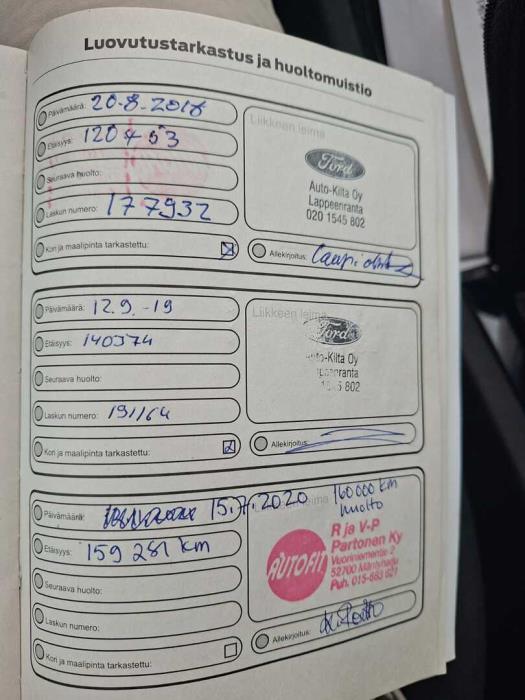 Luovutustarkastus ja huoltomuistio
Päivämäärä: 20.8.2018
Etäisyys: 120453
Seuraava huolto:
Laskun numero: 177932
Kori ja maalipinta tarkastettu:
Liikkeen leima
Ford
Auto-Kilta Oy
Lappeenranta
020 1545 802
Allekirjoitus:
Päivämäärä: 12.9.-19
Etäisyys: 140374
Seuraava huolto:
Laskun numero: 191164
Kori ja maalipinta tarkastettu:
Liikkeen leima
Ford
-Kilta Oy
ranta
5 802
Allekirjoitus:
Päivämäärä: 15.7.2020
Etäisyys: 159 281 km
Seuraava huolto:
Laskun numero:
Kori ja maalipinta tarkastettu:
leima
160 000 km
huolto
AUTOFIT
R ja V-P
Partonen Ky
Vuoriniementie 2
52700 Mäntyharju
Puh. 015-683 621
Allekirjoitus: